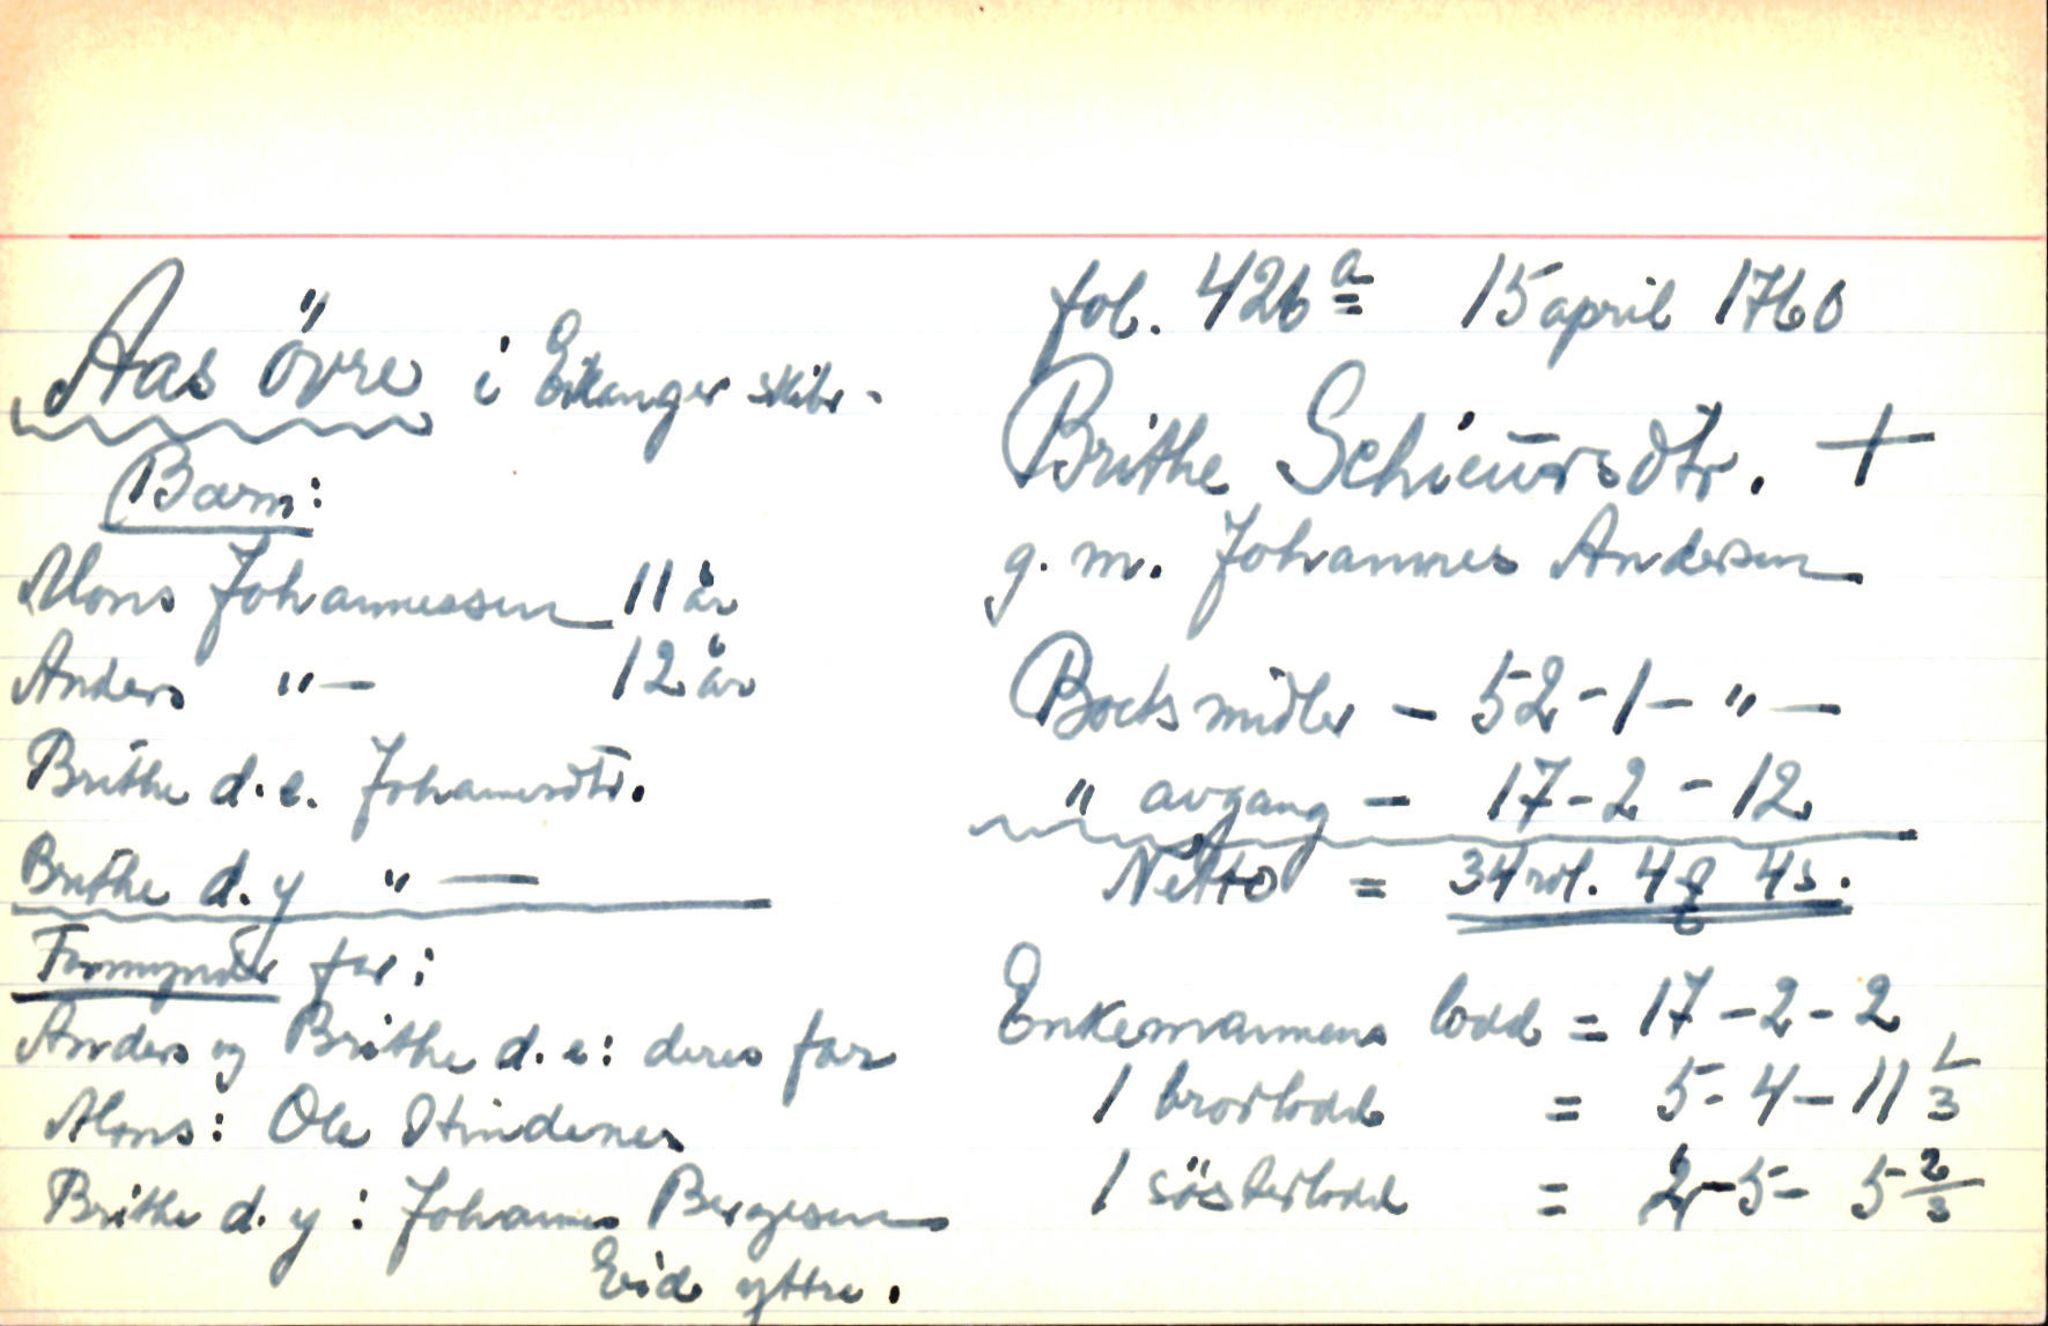 Aas övre i Eikanger skibr.
Barn:
Mons Johannessen 11 år
Anders "— 12 år
Brithe d.e. Johannesdtr.
Brithe d.y "—
Formynder for:
Anders og Brithe d.e: deres far
Mons: Ole Hindenes
Brithe d.y: Johannes Bergesen
Eide yttre.
fol. 426a 15 april 1760
Brithe Schieursdtr. +
g. m. Johannes Andersen
Boets midler - 52-1-"-
" avgang - 17-2-12
Netto = 34 rdl. 4 ₰ 4 s.
Enkemannens lodd = 17-2-2
1 brorlodd = 5-4-11 1/3
1 sösterlodd = 2-5-5 2/3